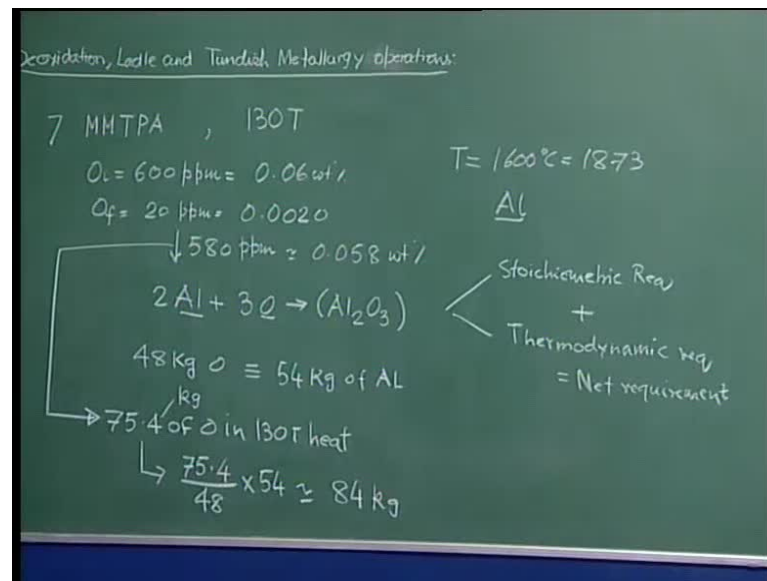 Deoxidation, Ladle and Tundish Metallurgy operations:
7 MMTPA , 130T
Oi = 600 ppm = 0.06 wt%
Of = 20 ppm = 0.0020
↓ 580 ppm ≃ 0.058 wt%
2 Al + 3 O → (Al2O3)
48 Kg O ≡ 54 Kg of AL
kg
75.4 of O in 130T heat
75.4/48 × 54 ≃ 84 kg
T = 1600°C = 1873
Al
Stoichiometric Req
+
Thermodynamic req
= Net requirement